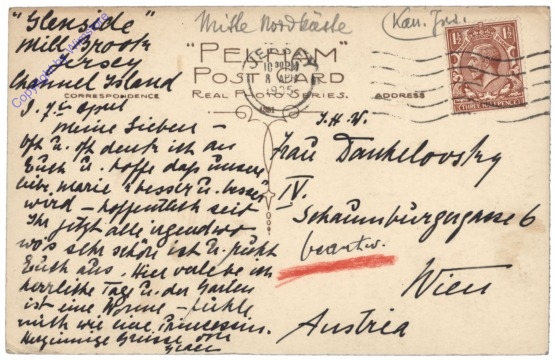 "Glenside"
Mill Brook
Jersey
Channel Island
Mitte Nordküste
Kan. Ins.
"PELHAM"
POST CARD
REAL PHOTO SERIES.
CORRESPONDENCE
ADDRESS
JERSEY
8 AP
1935
1½ 1½
THREE HALFPENCE
7th April
Meine Lieben –
Oft u. oft denk ich an
Euch u. hoffe daß unsere
liebe Marie besser u. besser
wird – hoffentlich seid
Ihr jetzt alle irgendwo
wo's sehr schön ist u. ruht
Euch aus. Hier verlebe ich
herrliche Tage u. der Garten
ist eine Wonne – fühle
mich wie eine Prinzessin.
Herzinnige Grüsse
Frau Dankelovsky
IV.
Schaumburgergasse 6
beantw.
Wien
Austria